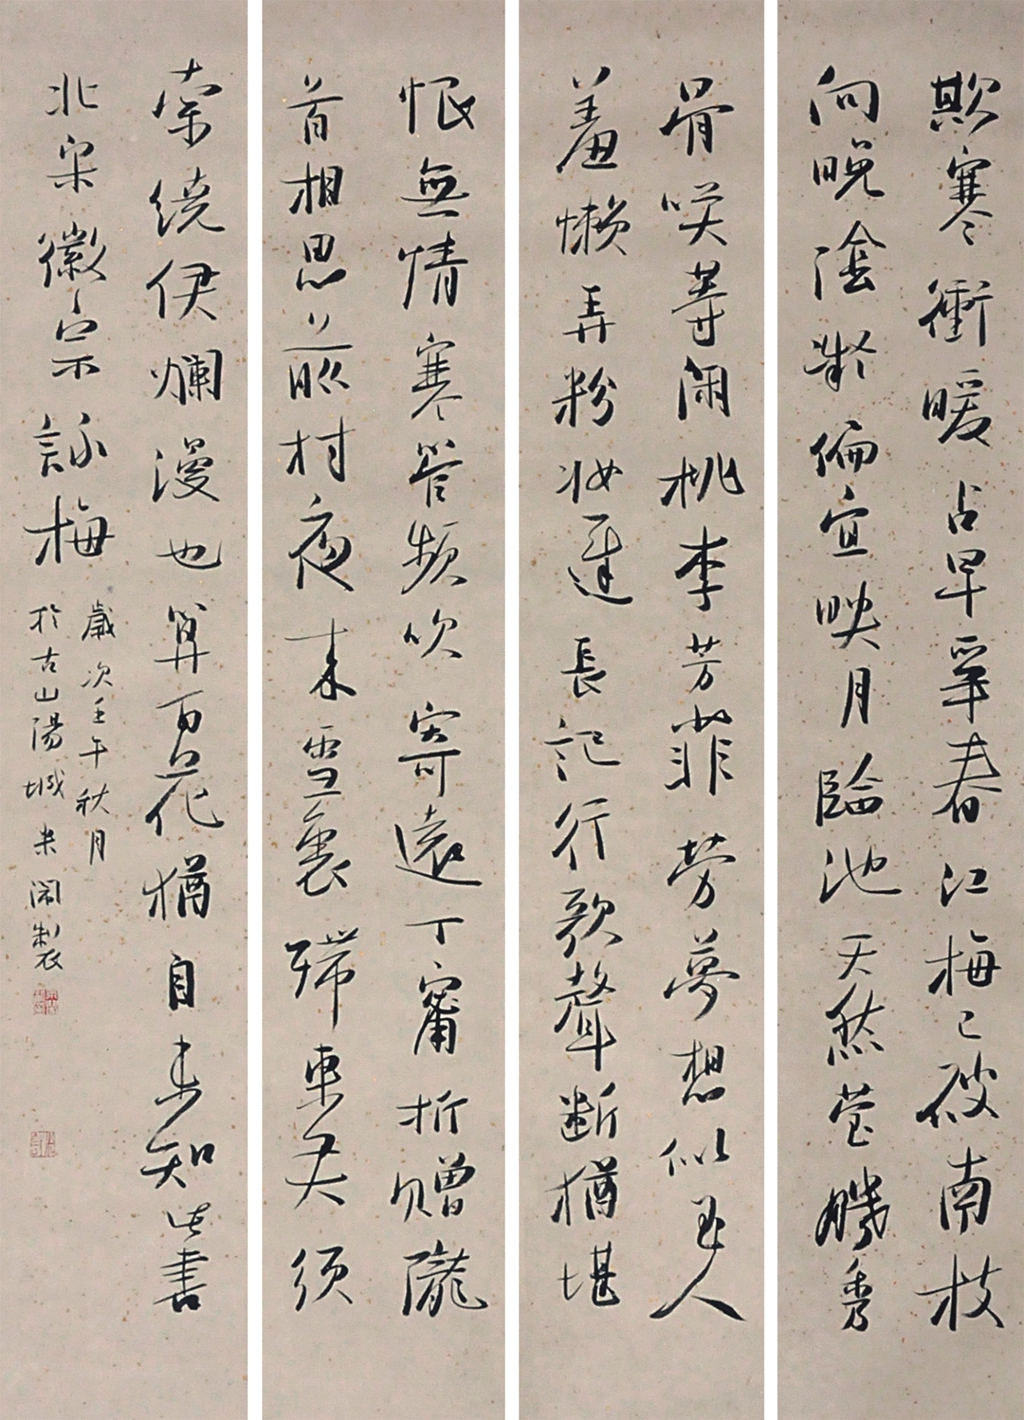 欺寒衝暖占早爭春江梅已破南枝
向晚陰凝偏宜映月臨池天然莹肌秀
骨咲等閑桃李芳菲勞夢想似玉人
羞懶弄粉妝遲長記行歌聲斷猶堪
恨無情寒管頻吹寄遠丁甯折贈隴
首相思前村夜来雪裏殢東君須
索繞伊爛漫也算百花猶自未知此書
北宋徽宗詠梅
歲次壬午秋月
於古山陽城製